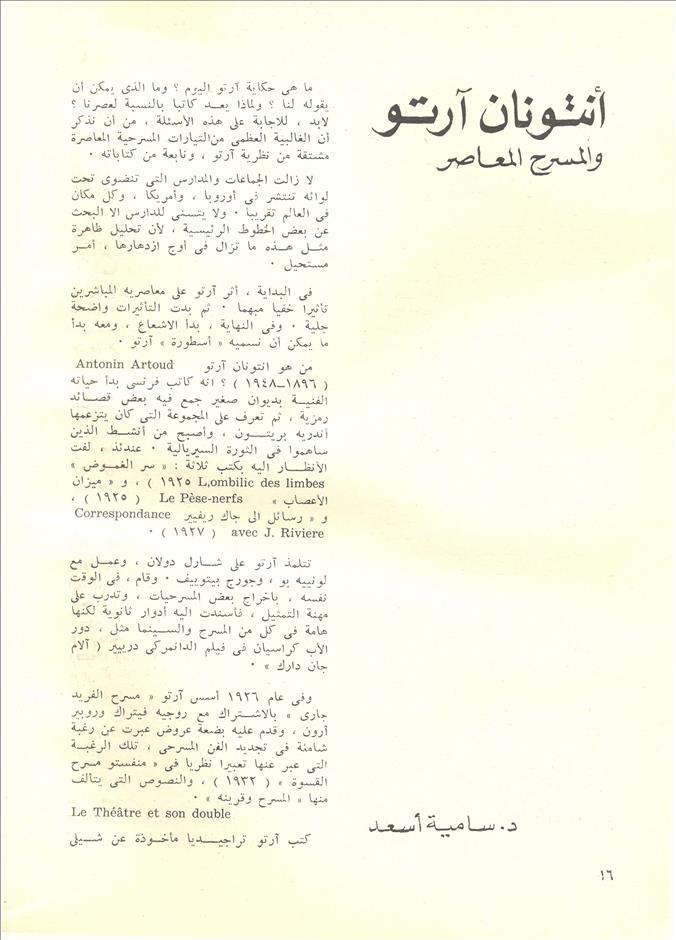 أنتونان آرتو
والمسرح المعاصر
د. سامية أسعد
ما هى حكاية آرتو اليوم ؟ وما الذى يمكن أن
يقوله لنا ؟ ولماذا يعد كاتبا بالنسبة لعصرنا ؟
لابد ، للاجابة على هذه الأسئلة ، من أن نذكر
أن الغالبية العظمى من التيارات المسرحية المعاصرة
مشتقة من نظرية آرتو ، ونابعة من كتاباته ·
لا زالت الجماعات والمدارس التى تنضوى تحت
لوائه تنتشر فى أوروبا ، وأمريكا ، وكل مكان
فى العالم تقريبا · ولا يتسنى للدارس الا البحث
عن بعض الخطوط الرئيسية ، لأن تحليل ظاهرة
مثل هذه ما تزال فى أوج ازدهارها ، أمر
مستحيل ·
فى البداية ، أثر آرتو على معاصريه المباشرين
تأثيرا خفيا مبهما · ثم بدت التأثيرات واضحة
جلية · وفى النهاية ، بدأ الاشعاع ، ومعه بدأ
ما يمكن أن نسميه « أسطورة » آرتو ·
من هو انتونان آرتو Antonin Artoud
( ١٨٩٦–١٩٤٨ ) ؟ انه كاتب فرنسى بدأ حياته
الفنية بديوان صغير جمع فيه بعض قصائد
رمزية ، ثم تعرف على المجموعة التى كان يتزعمها
أندريه بريتون ، وأصبح من أنشط الذين
ساهموا فى الثورة السيريالية · عندئذ ، لفت
الأنظار اليه بكتب ثلاثة : « سر الغموض »
L,ombilic des limbes ١٩٢٥ ) ، و « ميزان
الأعصاب » Le Pèse-nerfs ( ١٩٢٥ ) ،
و « رسائل الى جاك ريفيير Correspondance
avec J. Riviere ( ١٩٢٧ ) ·
تتلمذ آرتو على شارل دولان ، وعمل مع
لونييه بو ، وجورج بيتوييف · وقام ، فى الوقت
نفسه ، باخراج بعض المسرحيات ، وتدرب على
مهنة التمثيل ، فأسندت اليه أدوار ثانوية لكنها
هامة فى كل من المسرح والسينما مثل ، دور
الأب كراسيان فى فيلم الدانمركى دريير ( آلام
جان دارك » ·
وفى عام ١٩٢٦ أسس آرتو « مسرح الفريد
جارى » بالاشتراك مع روجيه فيتراك وروبير
آرون ، وقدم عليه بضعة عروض عبرت عن رغبة
شاملة فى تجديد الفن المسرحى ، تلك الرغبة
التى عبر عنها تعبيرا نظريا فى « منفستو مسرح
القسوة » ( ١٩٣٢ ) ، والنصوص التى يتألف
منها « المسرح وقرينه » ·
Le Théâtre et son double
كتب آرتو تراجيديا مأخوذة عن شيلى
١٦